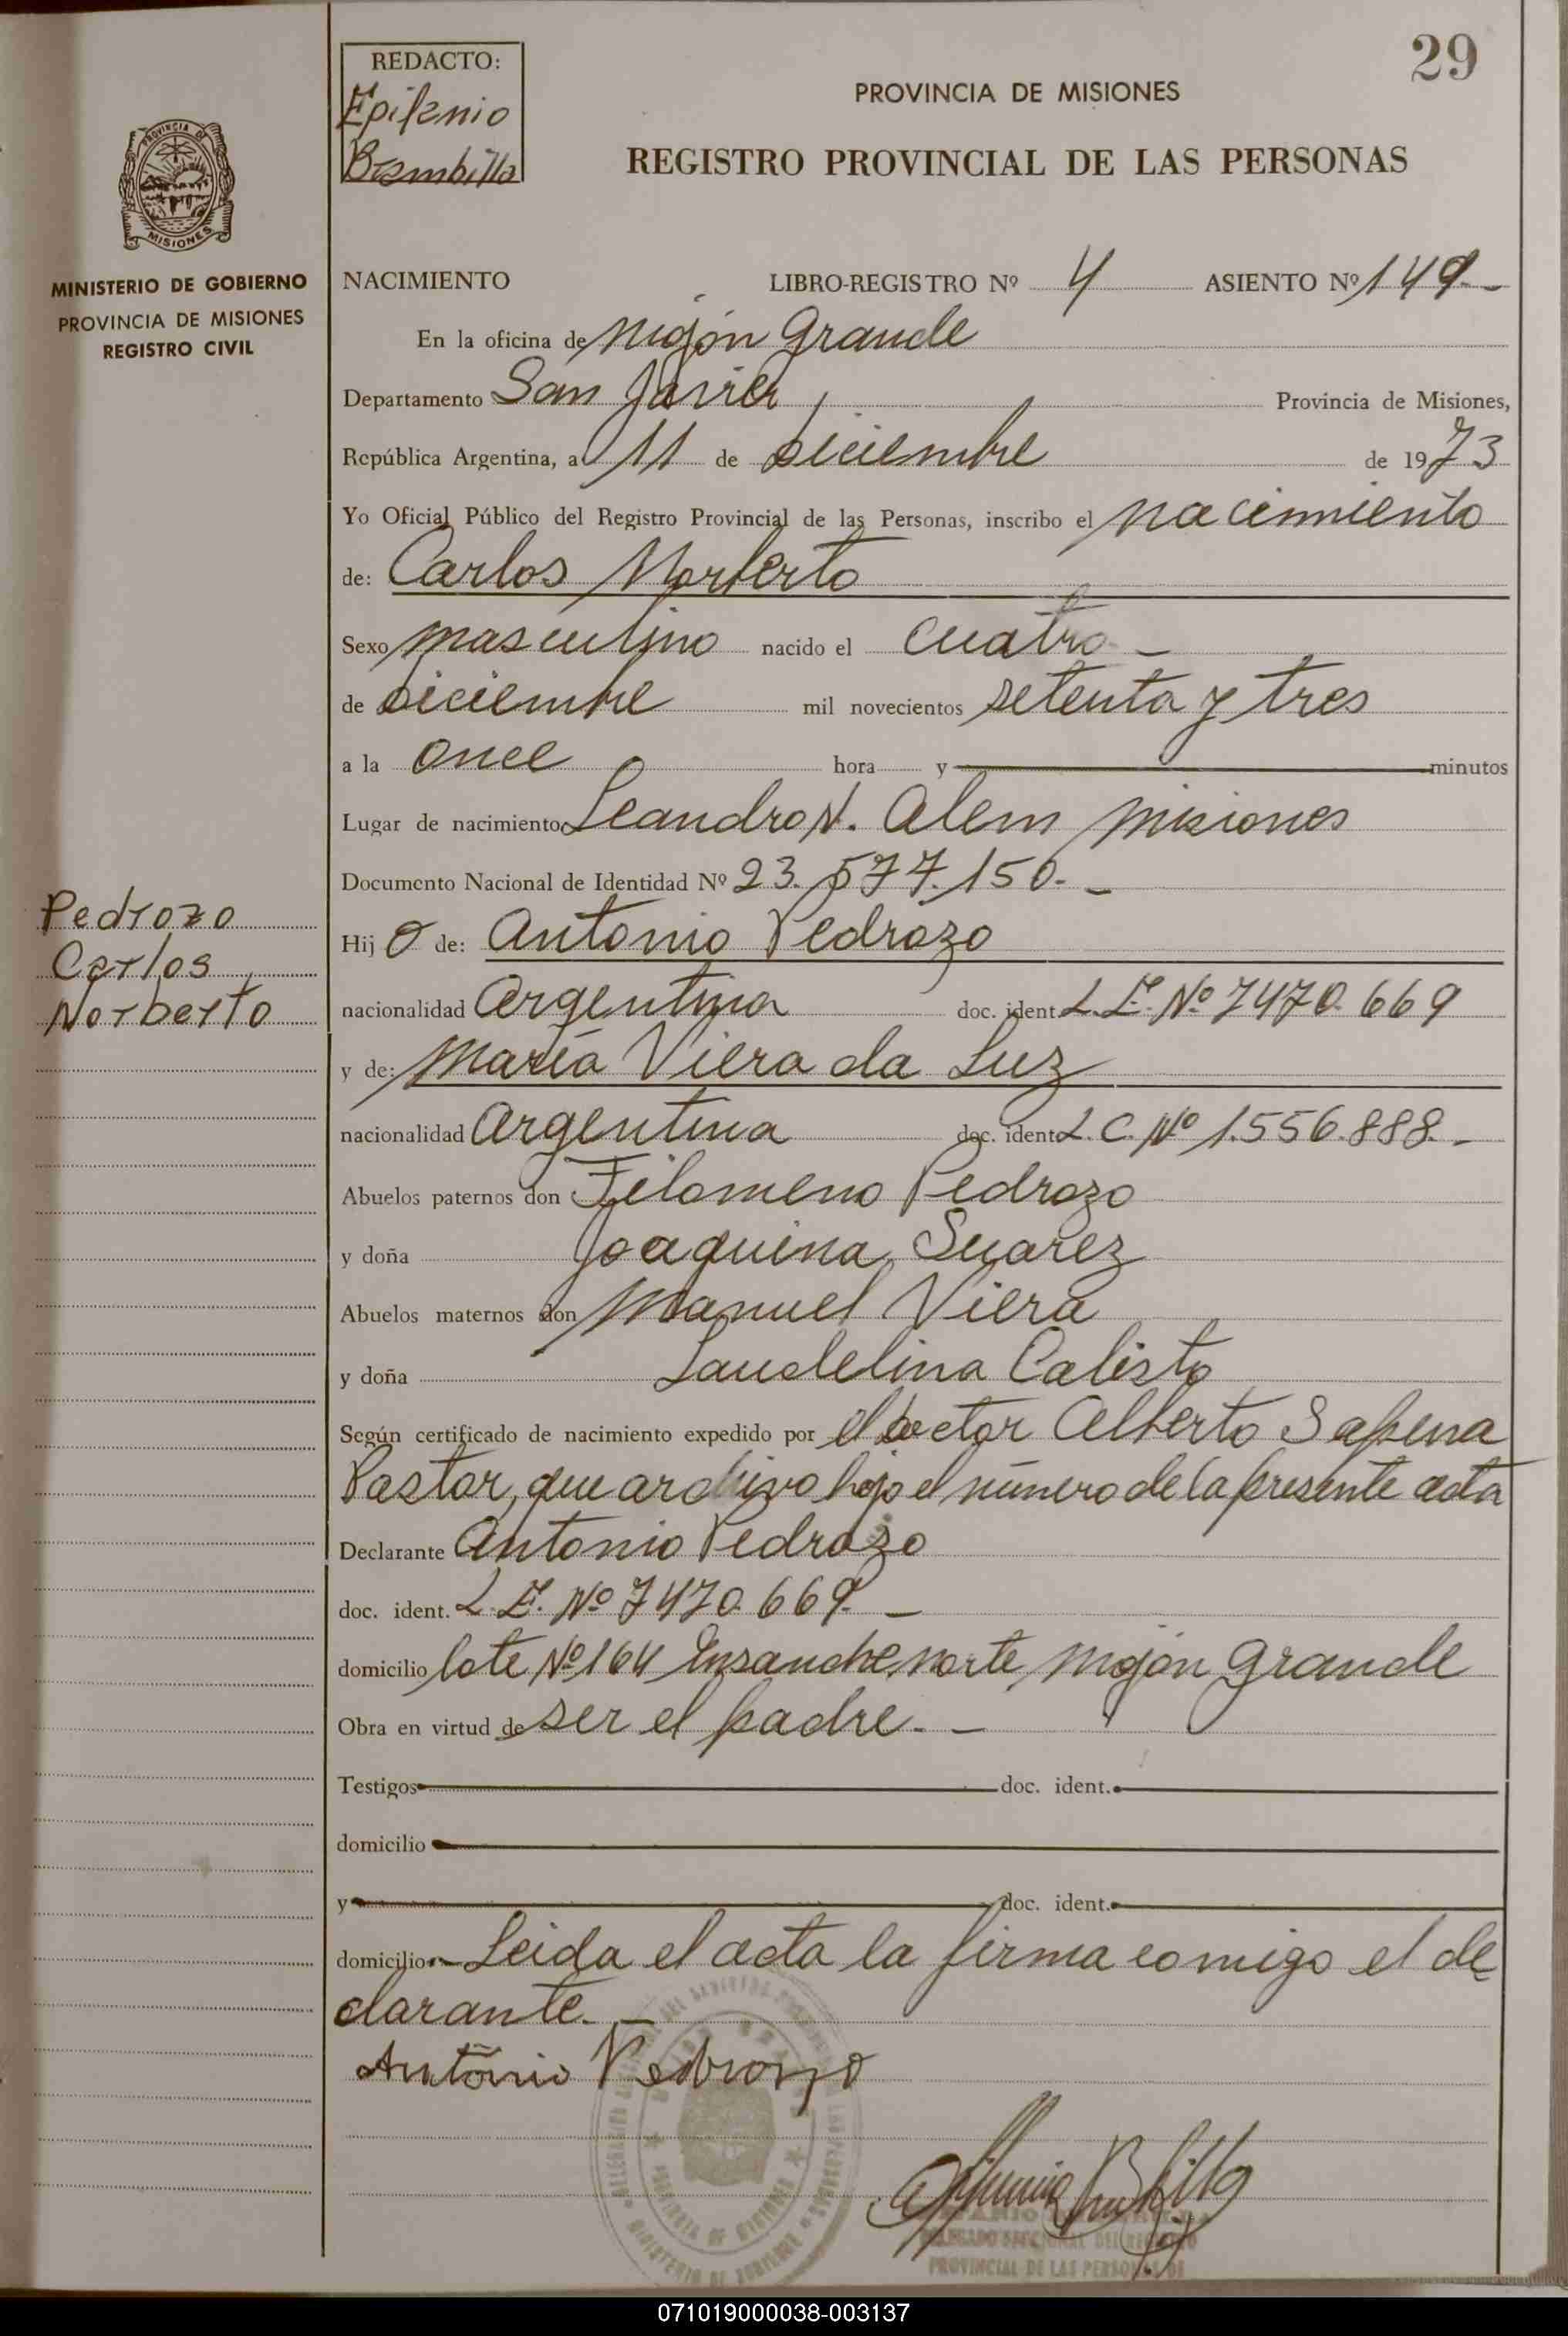 29
REDACTO:
Epifanio
Brambilla
PROVINCIA DE MISIONES
REGISTRO PROVINCIAL DE LAS PERSONAS
PROVINCIA DE
MISIONES
MINISTERIO DE GOBIERNO
PROVINCIA DE MISIONES
REGISTRO CIVIL
NACIMIENTO LIBRO-REGISTRO Nº 4 ASIENTO Nº 149.-
En la oficina de Mojón Grande
Departamento San Javier, Provincia de Misiones,
República Argentina, a 11 de Diciembre de 1973
Yo Oficial Público del Registro Provincial de las Personas, inscribo el nacimiento
de: Carlos Norberto
Sexo masculino nacido el cuatro -
de Diciembre mil novecientos setenta y tres
a la once hora y minutos
Lugar de nacimiento Leandro N. Alem Misiones
Documento Nacional de Identidad Nº 23.577.150.-
Pedrozo
Carlos
Norberto
Hijo de: Antonio Pedrozo
nacionalidad Argentina doc. ident. L.E. Nº 7470.669
y de: María Viera da Luz
nacionalidad Argentina doc. ident. L.C. Nº 1.556.888.-
Abuelos paternos don Filomeno Pedrozo
y doña Joaquina Suarez
Abuelos maternos don Manuel Viera
y doña Laudelina Calisto
Según certificado de nacimiento expedido por el Doctor Alberto Sapena
Pastor, que archivo bajo el número de la presente acta
Declarante Antonio Pedrozo
doc. ident. L.E. Nº 7470.669.-
domicilio lote Nº 164 Ensanche norte, Mojón Grande
Obra en virtud de ser el padre.-
Testigos doc. ident.
domicilio
y doc. ident.
domicilio Leida el acta la firma comigo el de
clarante.-
Antonio Pedrozo
PROVINCIAL DE LAS PERSONAS DE
071019000038-003137